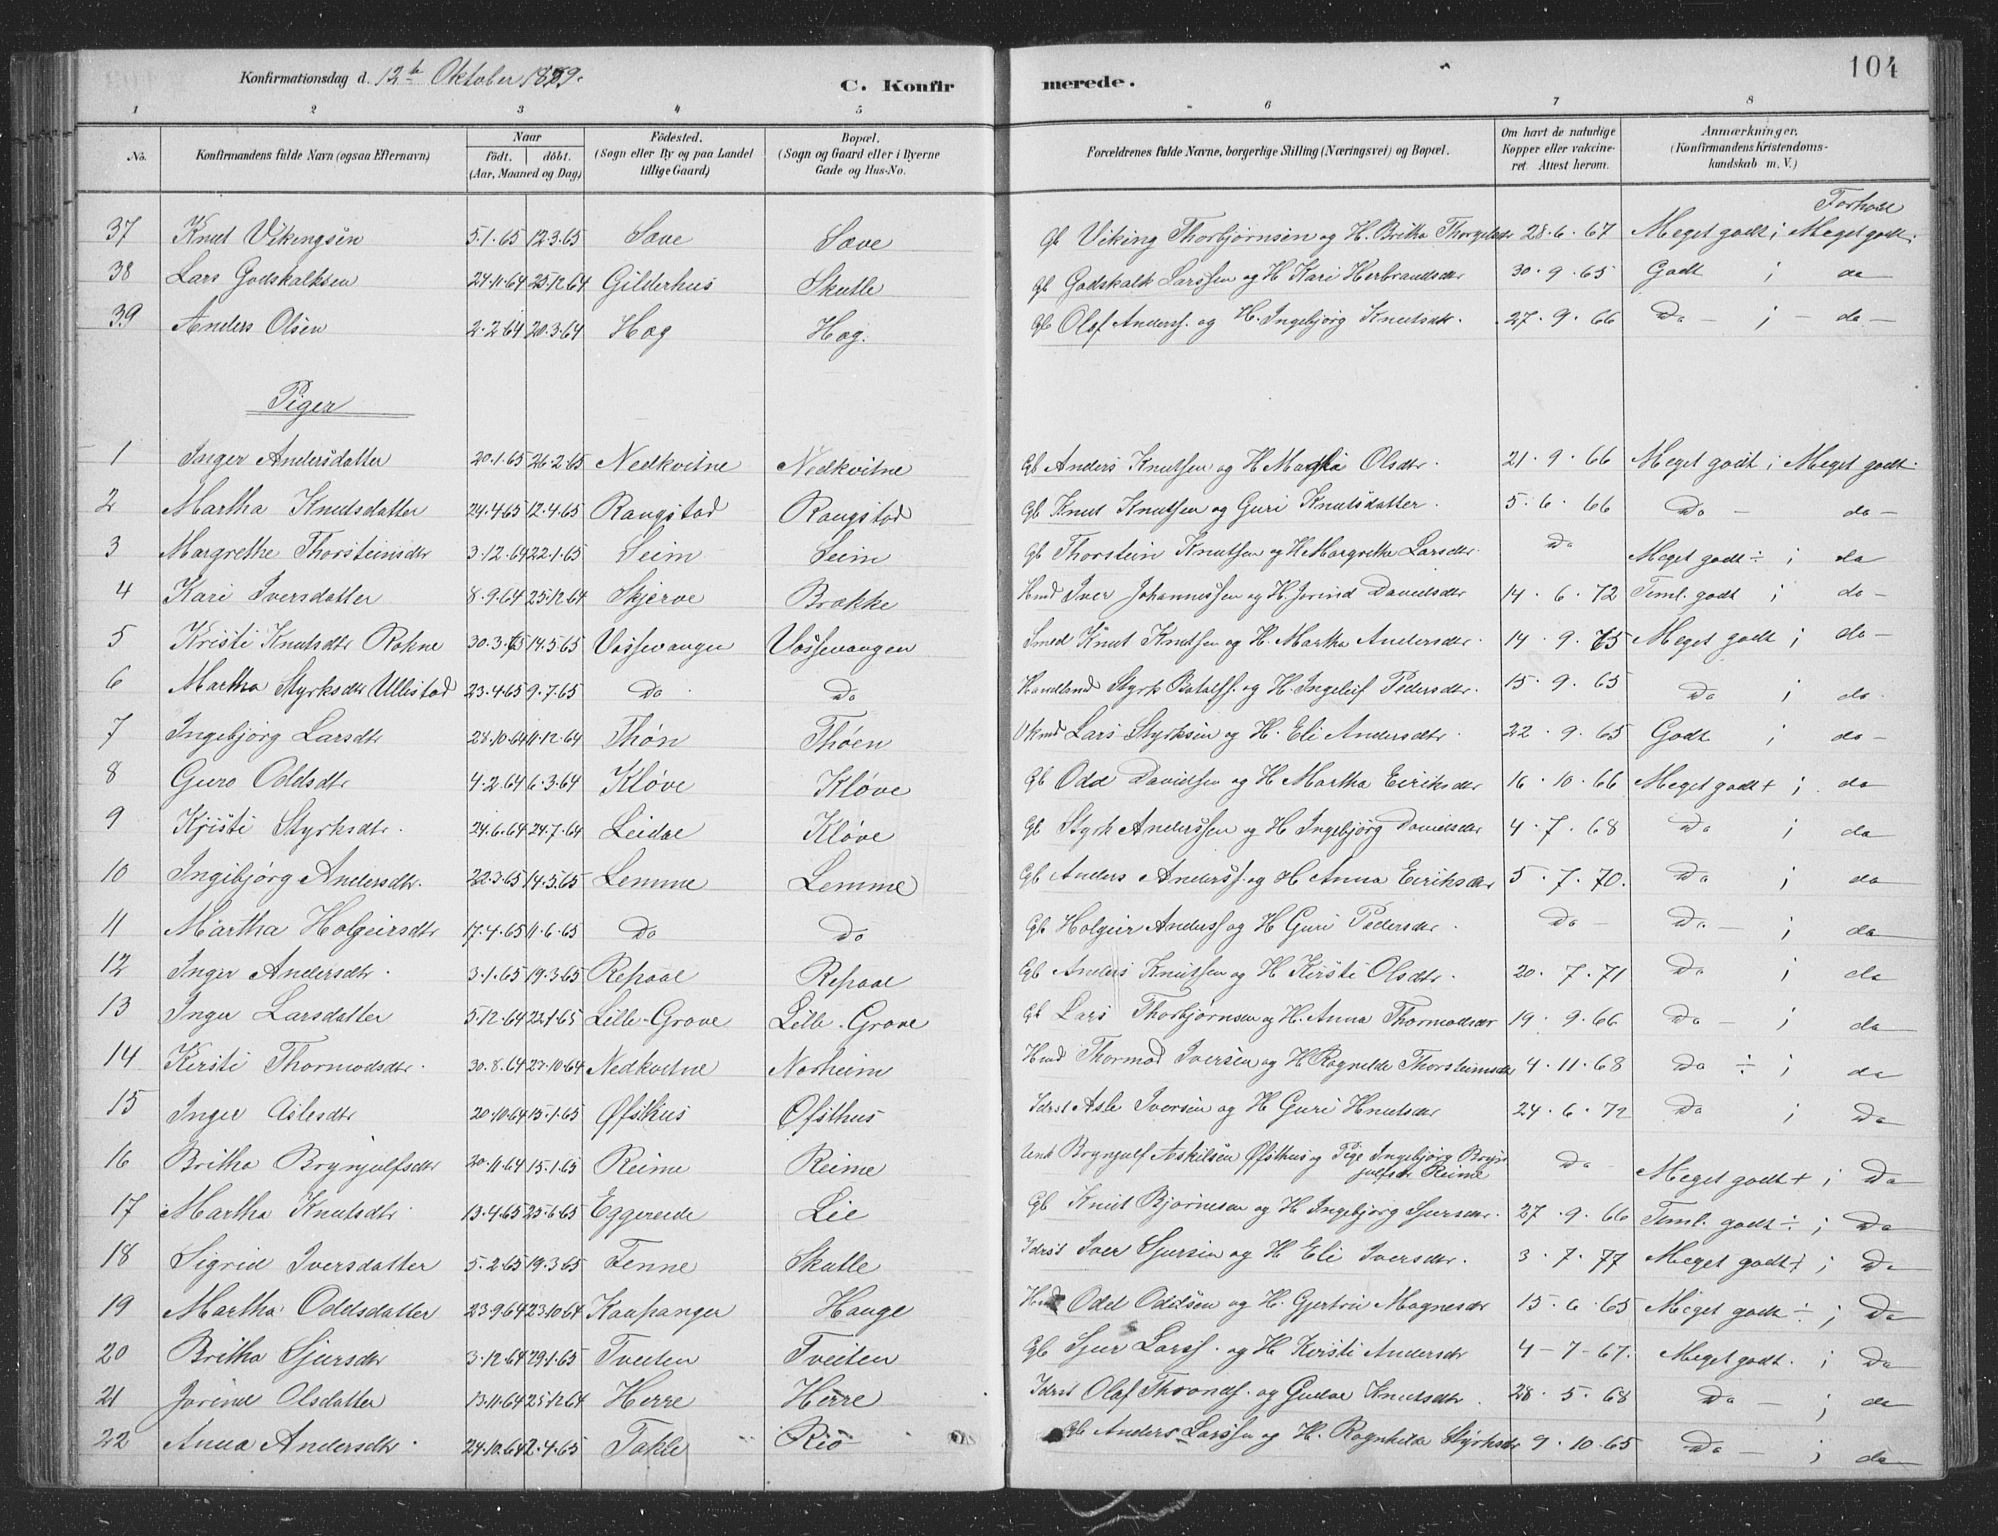 104
Konfirmationsdag d. 12te Oktober 1879.
C. Konfirmerede.
1 2 3 4 5 6 7 8
No. Konfirmandens fulde Navn (ogsaa Efternavn) Naar födt. döbt. (Aar, Maaned og Dag) Födested. (Sogn eller By og paa Landet tillige Gaard) Bopæl. (Sogn og Gaard eller i Byerne Gade og Hus-No. Forældrenes fulde Navne, borgerlige Stilling (Næringsvei) og Bopæl. Om havt de naturlige Kopper eller vakcineret. Attest herom. Anmærkninger. (Konfirmandens Kristendomskundskab m. V.)
Forhold
37 Knut Vikingsen 5.1.65 12.3.65 Sæve Sæve Gb Viking Thorbjørnsen og H. Britha Thorgilsdr 28.6.67 Meget godt; Meget godt.
38 Lars Godskalksen 24.11.64 25.12.64 Gilderhus Skutle Gb Godskalk Larssen og H. Kari Herbrandsdr 30.9.65 Godt ; do
39 Anders Olsen 2.2.64 20.3.64 Hæg Hæg. Gb Olaf Anderss. og H. Ingebjørg Knutsdtr. 27.9.66 Do - ; - do -
Piger
1 Inger Andersdatter 20.1.65 26.2.65 Nedkvitne Nedkvitne Gb Anders Knutsen og H Olsdtr. 21.9.66 Meget godt ; Meget godt.
2 Martha Knutsdatter 24.4.65 12.4.65 Rangstad Rangstad Gb Knut Knutsen og Guri Knutsdatter. 5.6.66 Do - do -
3 Margrethe Thorsteinsdr 3.12.64 22.1.65 Seim Seim Gb Thorstein Knutsen og H. Margretha Larsdtr. Do Meget godt ÷ ; do
4 Kari Iversdatter 8.9.64 25.12.64 Skjerve Brække Hmd Iver Johannessen og H. Jorind Davidsdtr 14.6.72 Teml. godt ; do -
5 Kristi Knutsdtr Rokne 30.3.65 14.5.65 Vossevangen Vossevangen Smed Knut Knutsen og H. Martha Andersdtr. 14.9.65 Meget godt ; do -
6 Martha Styrksdtr Ullestad 23.4.65 9.7.65 Do Do Handlmd Styrk Bataldss. og H. Ingeleif Pedersdtr. 15.9.65 Do ; do.
7 Ingebjørg Larsdtr 28.10.64 11.12.64 Thøn Thøen Lars Styrksen og H. Eli Andersdtr. 22.9.65 Godt ; do -
8 Guro Oddsdtr 4.2.64 6.3.64 Kløve Kløve Gb Odd Davidsen og H Martha Eiriksdtr 16.10.66 Meget godt + ; do
9 Kjisti Styrksdtr. 24.6.64 24.7.64 Leidal Kløve Gb Styrk Anderssen og H Ingebjørg Davidsdtr 4.7.68 Do ; do
10 Ingibjørg Andersdtr. 22.3.65 14.5.65 Lemme Lemme Gb Anders Anderss. og H Anna Eiriksdtr 5.7.70. Do ; do
11 Martha Holgeirsdtr 17.4.65 11.6.65 Do Do Gb Holgeir Anderss og H Guri Pedersdtr. Do - Do - ; do
12 Inger Andersdtr. 3.1.65 19.3.65 Repaal Repaal Gb Anders Knutsen og H Kirsti Olsdtr. 20.7.71 Do ; do
13 Inger Larsdatter 5.12.64 22.1.65 Lille-Grove Lille-Grove Gb Lars Thorbjørnsen og H. Anna Thormodsdtr 19.9.66 Do - ; do
14 Kirsti Thormodsdtr. 30.8.64 23.10.64 Nedkvitne Norheim Hmd Thormod Iversen og H Ragnilde Thorsteinsdr 4.11.68 Do ÷ ; do
15 Inger Aslesdtr 20.10.64 15.1.65 Øfsthus Øfsthus Idrst Asle Iversen og H Guri Knutsdtr 24.6.72 Do ; Do
16 Britha Brynjulfsdtr 20.11.64 15.1.65 Reime Reime Brynjulf Askilsen Øfsthus og Pige Ingebjørg Brynjulfsdr Reime Do Meget godt + ; Do
17 Martha Knutsdtr. 13.4.65 25.6.65 Eggereide Lie Gb Knut Bjørnesen og H Ingebjørg Sjursdtr. 27.9.66 Teml. godt ÷ ; Do
18 Sigrid Iversdatter 5.2.65 19.3.65 Fenne Skutle Idrst Iver Sjursen og H Eli Iversdtr. 3.7.77 Meget godt + ; Do
19 Martha Oddsdatter 23.9.64 23.10.64 Kaupanger Hauge Hmd Odd Oddsen og H. Gjertru Magnesdtr 15.6.65 Meget godt ÷ ; Do
20 Britha Sjursdtr 3.12.64 29.1.65 Tveiten Tveiten Gb Sjur Larss. og H Kirsti Andersdtr 4-7-67. Meget godt. ; Do
21 Jorind Olsdatter 13.11.64 25.12.64 Herre Herre Idrst Olaf Throndss. og Gudve Knutsdtr 28.5.68 Do - ; do
22 Anna Andersdtr. 24.10.64 2.4.65 Takle Rio Gb Anders Larssen og H. Ragnhilda Styrksdtr 9.10.65 Do - ; do